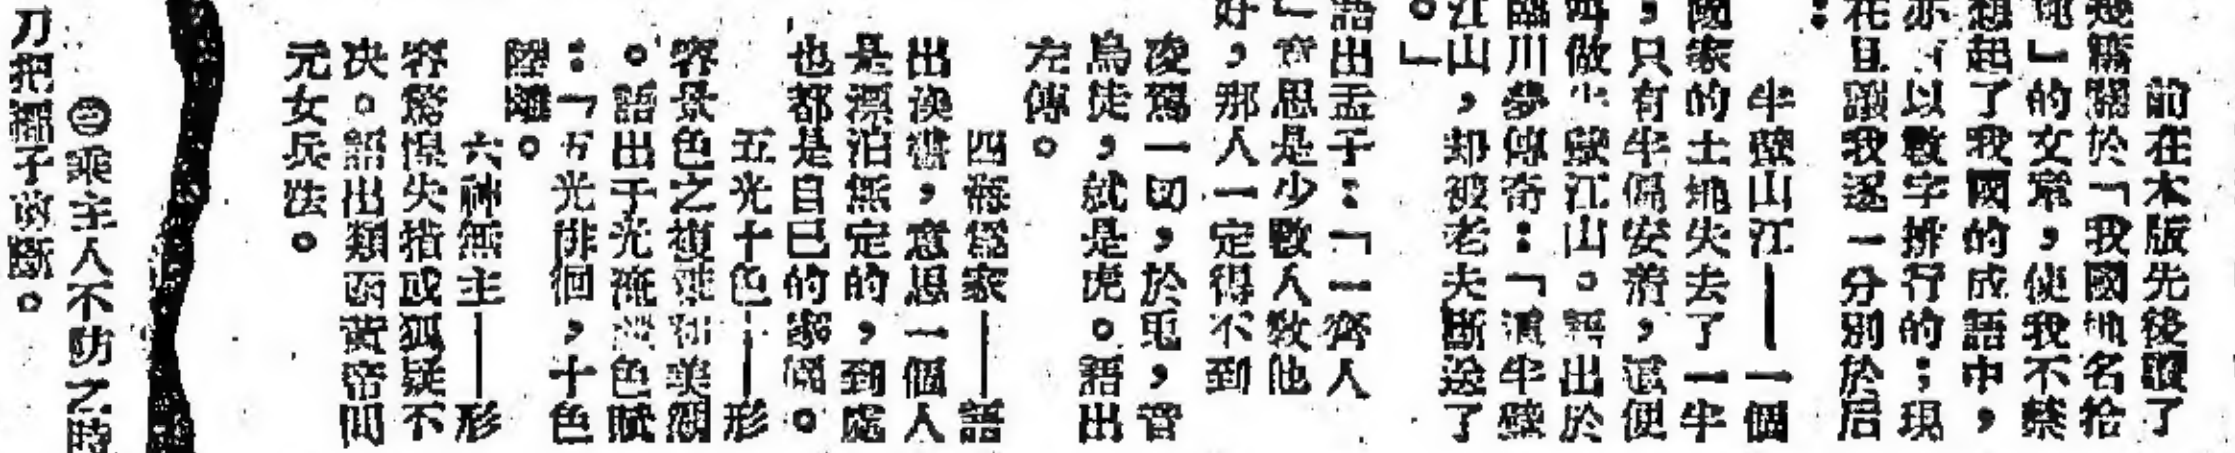 前在本版先後讀了
幾篇關於「我國地名拾
」的文章，使我不禁
想起了我國的成語中，
亦有以數字排行的；現
在且讓我逐一分別於后
：
半壁山江——一個
國家的土地失去了一半
，只有半偏安着，這便
叫做半壁江山。語出於
臨川夢傳奇：「半壁
江山，却被老夫斷送了
。」
語出孟子：「一齊人
」意思是少數人敎他
好，那人一定得不到
凌駕一切，於兎，管
烏徒，就是虎。語出
左傳。
四海爲家——語
出漢書，意思一個人
是漂泊無定的，到處
也都是自己的家。
五光十色——形
容景色之複雜和美
。語出于光淹色賦
：「五光徘徊，十色
陸離。
六神無主——形
容驚惶失措或狐疑不
决。語出類函黃帝問
元女兵法。
㊁乘主人不防之時
刀把繩子剪斷。